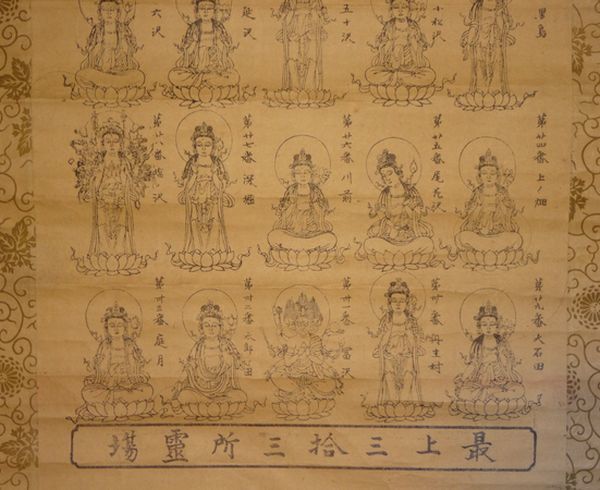 黒鳥
小松沢
五十沢
延沢
六沢
第廿四番 上ノ畑
第廿五番 尾花沢
第廿六番 川前
第廿七番 深堀
第廿八番 沢
第廿九番 大石田
第卅番 丹生村
第卅一番 富沢
第卅二番 太郎田
第卅三番 庭月
最上三拾三所靈場